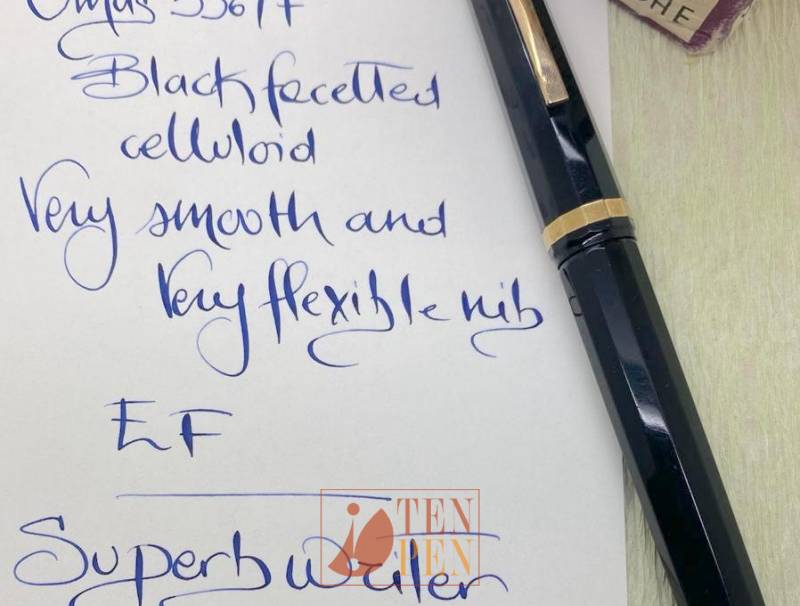 Omas 556/F
Black facetted
celluloid
Very smooth and
Very flexible nib
EF
Superb writer
TEN
PEN